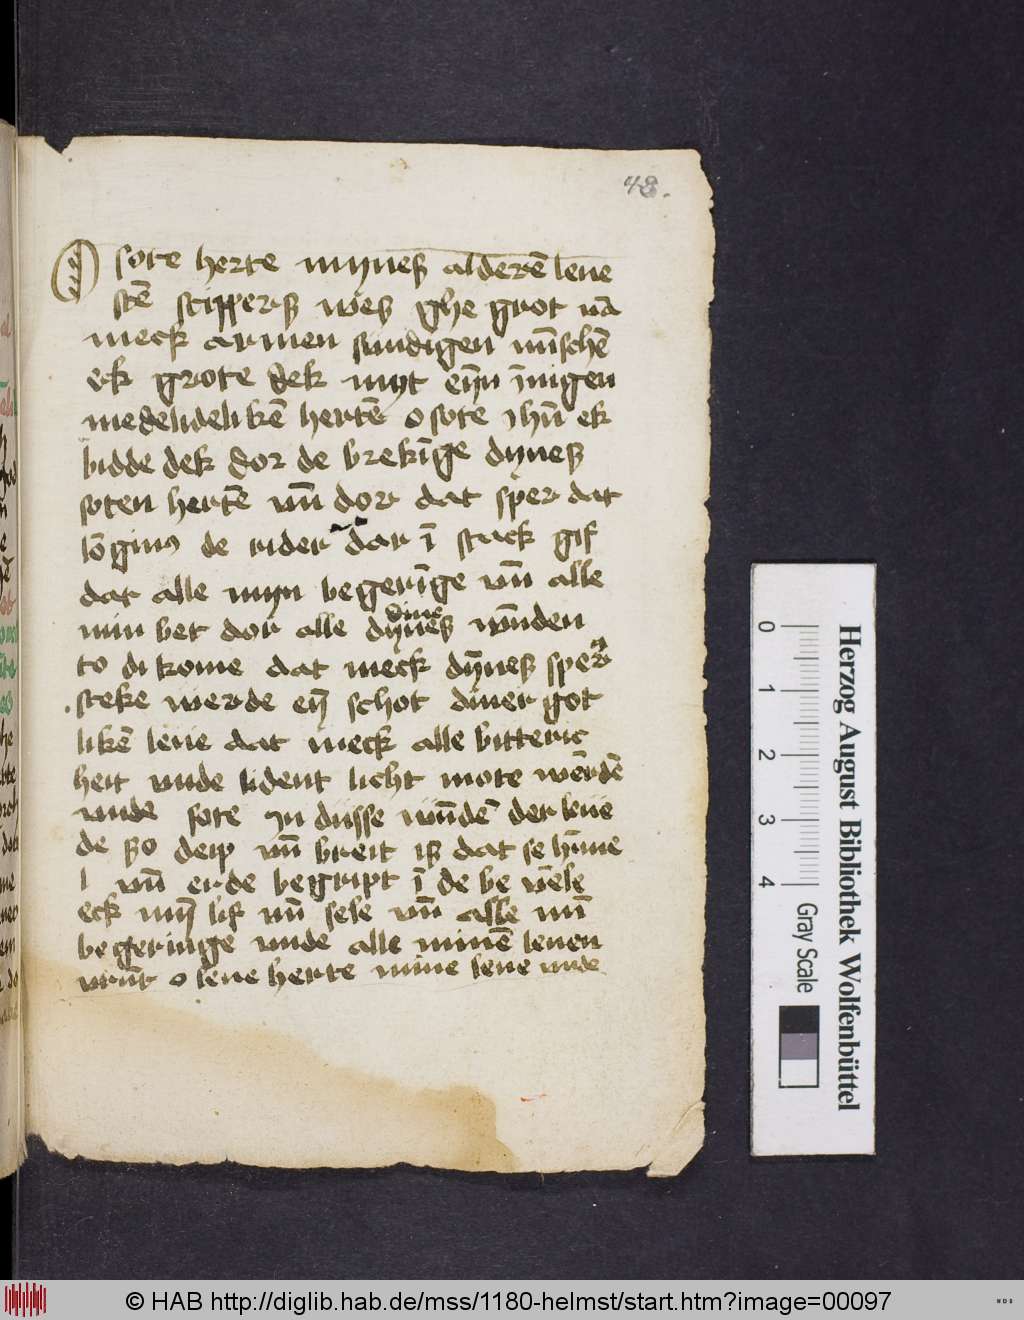 48.
O sote herte mynes alderē leue
stē scippers wes ghe grot vā
meck armen sundigen mīschē
ek grote dek myt eyn īnigen
medelidelikē hertē o sote ihū ek
bidde dek dor de brekīge dynes
soten hertē vn̄ dor dat sper dat
lōginus de rider dar ī stack gif
dat alle myn begerīge vn̄ alle
min bet dor alle dynes dine wūden
to di kome dat meck dynes sper
steke werde eyn schot diner got
likē leue dat meck alle bitteric
heit vnde lident licht mote werdē
vnde sote In dusse wūdē der leue
de so deip vn̄ breit is dat se hīme
l vn̄ erde begript ī de be vele
eck myn lif vn̄ sele vn̄ alle min
begeringe vnde alle minē leuen
vrūt o leue herte mine leue vnde
0 1 2 3 4
Gray Scale
Herzog August Bibliothek Wolfenbüttel
© HAB http://diglib.hab.de/mss/1180-helmst/start.htm?image=00097